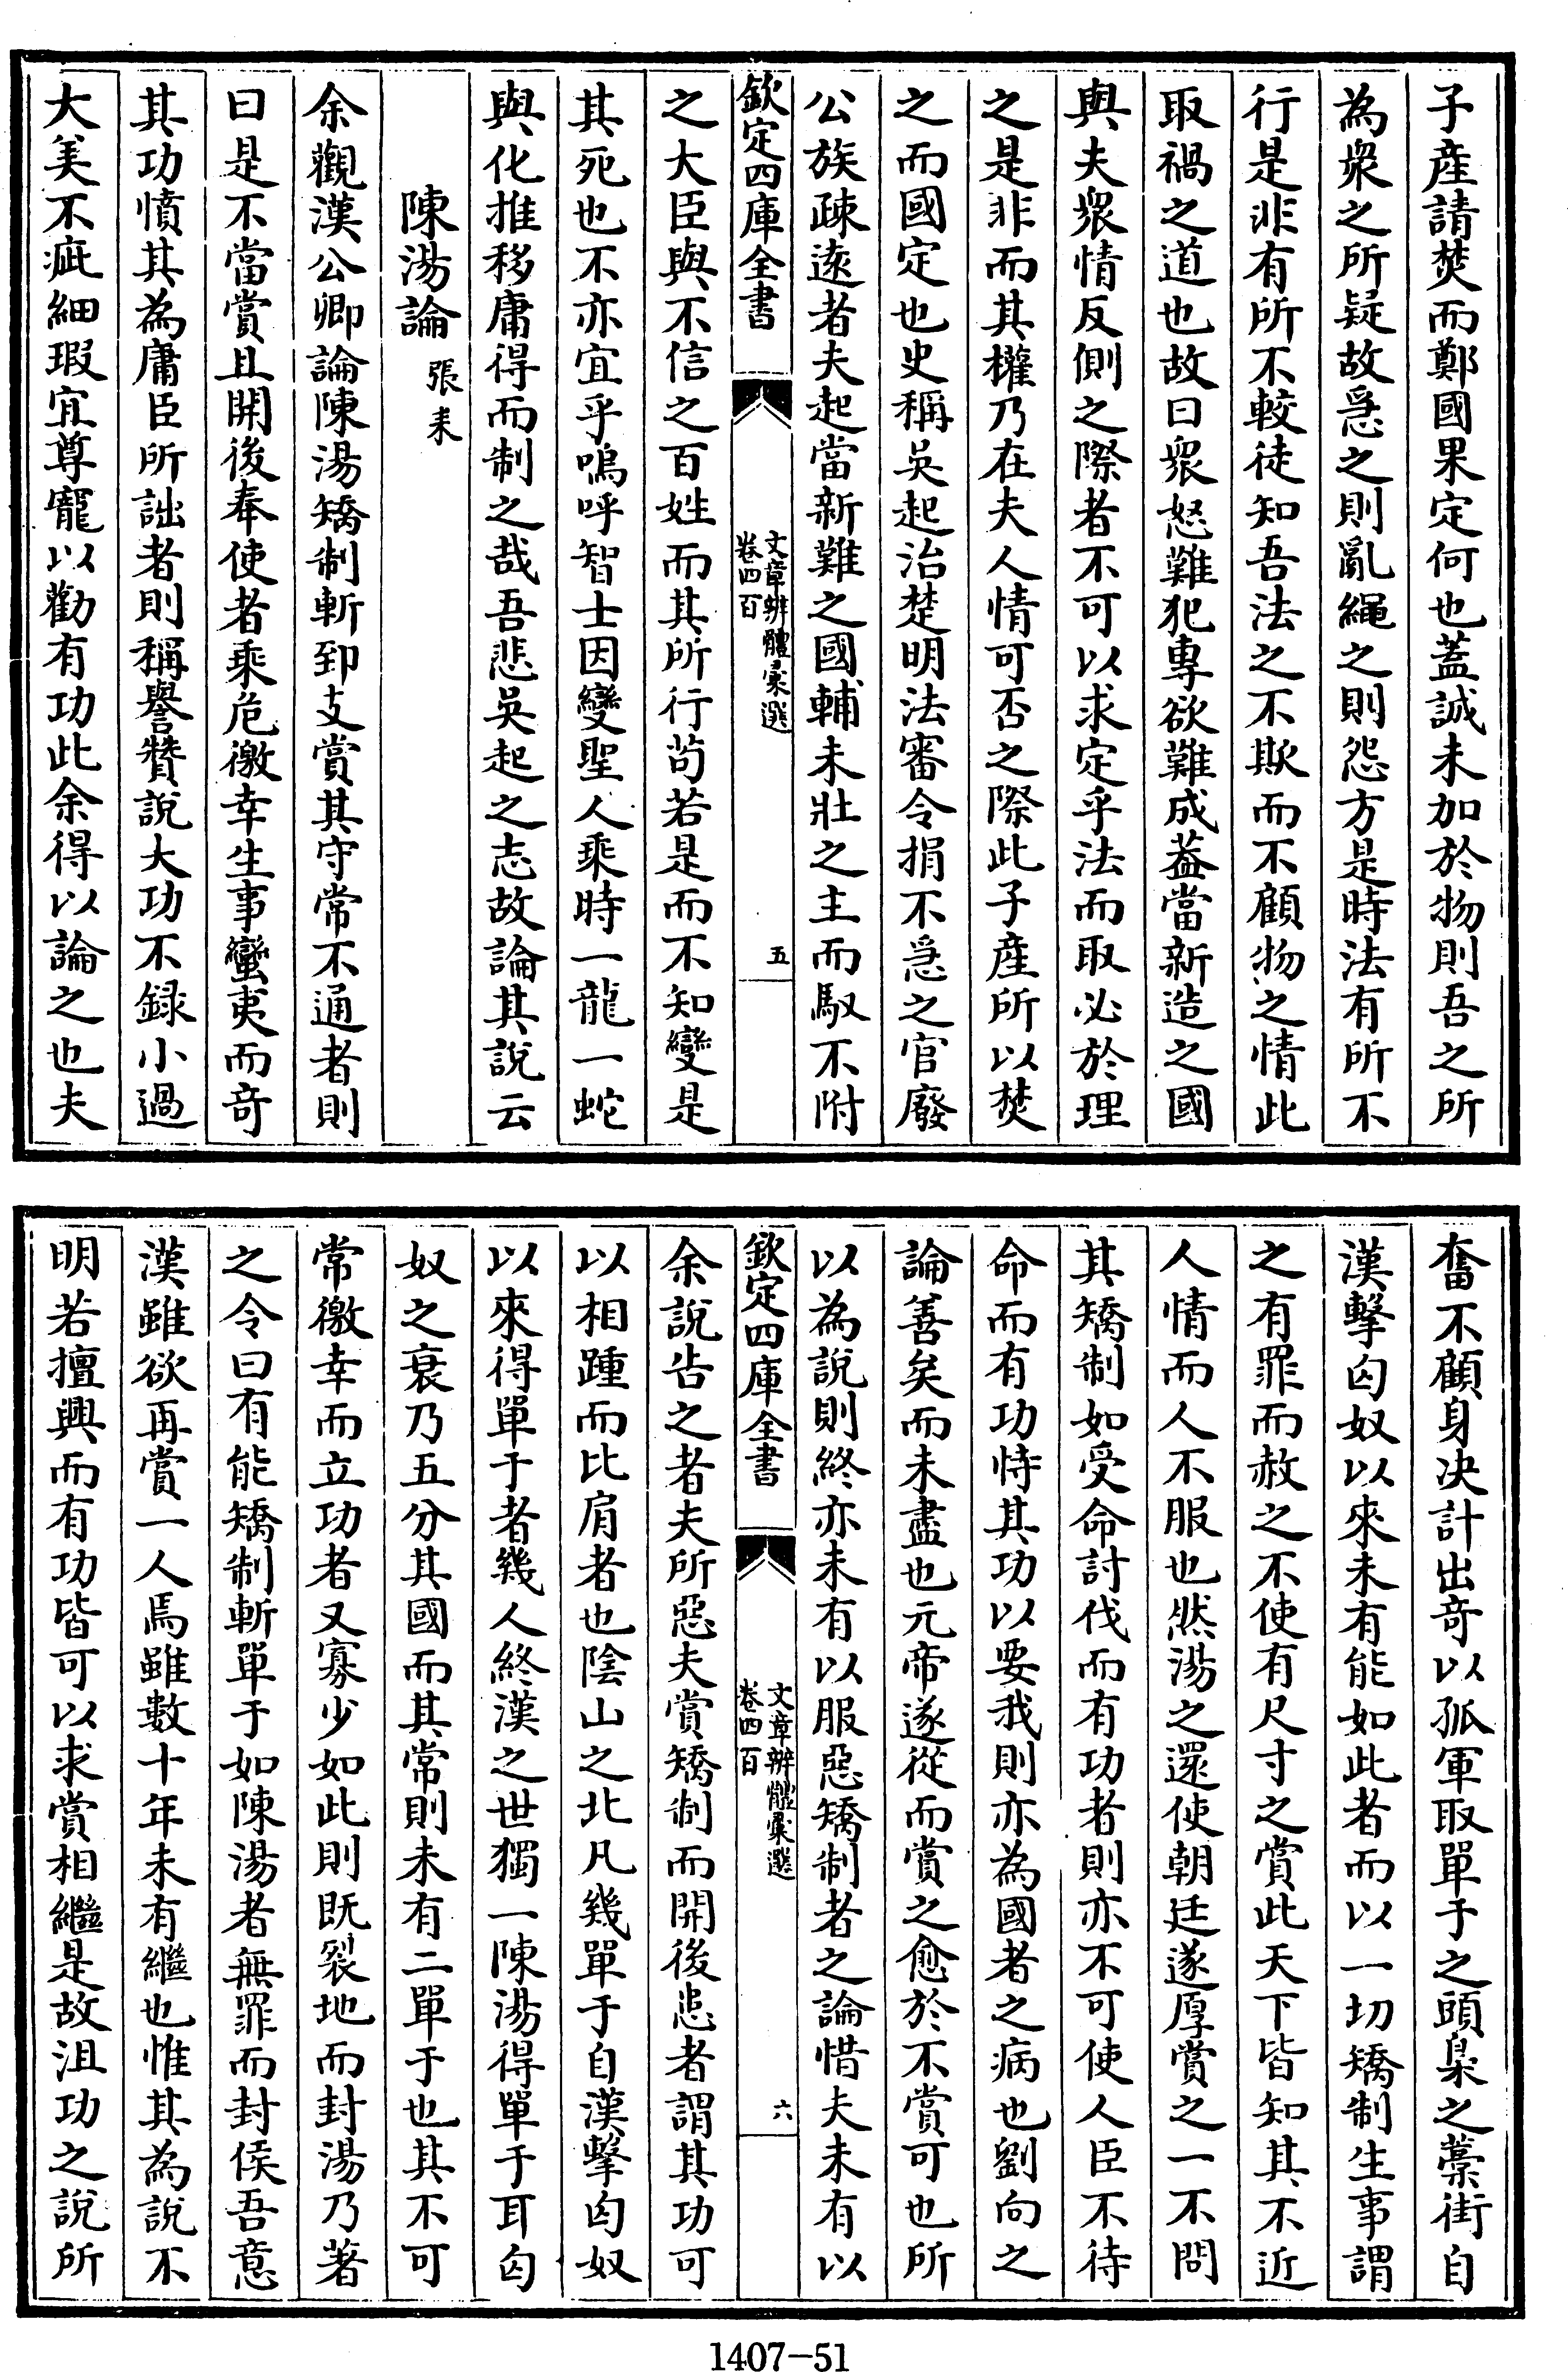 子產請焚而鄭國果定何也蓋誠未加於物則吾之所
為衆之所疑故急之則亂繩之則怨方是時法有所不
行是非有所不較徒知吾法之不欺而不顧物之情此
取禍之道也故曰衆怒難犯專欲難成葢當新造之國
與夫衆情反側之際者不可以求定乎法而取必於理
之是非而其權乃在夫人情可否之際此子產所以焚
之而國定也史稱吳起治楚明法審令捐不急之官廢
公族疎遠者夫起當新難之國輔未壯之主而馭不附
欽定四庫全書
文章辨體彙選
卷四百
五
之大臣與不信之百姓而其所行苟若是而不知變是
其死也不亦宜乎嗚呼智士因變聖人乘時一龍一蛇
與化推移庸得而制之哉吾悲吳起之志故論其說云
陳湯論 張耒
余觀漢公卿論陳湯矯制斬郅支賞其守常不通者則
曰是不當賞且開後奉使者乘危徼幸生事蠻夷而奇
其功憤其為庸臣所詘者則稱譽贊說大功不録小過
大美不疵細瑕宜尊寵以勸有功此余得以論之也夫
奮不顧身决計出奇以孤軍取單于之頭梟之藁街自
漢擊匈奴以來未有能如此者而以一切矯制生事謂
之有罪而赦之不使有尺寸之賞此天下皆知其不近
人情而人不服也然湯之還使朝廷遂厚賞之一不問
其矯制如受命討伐而有功者則亦不可使人臣不待
命而有功恃其功以要我則亦為國者之病也劉向之
論善矣而未盡也元帝遂從而賞之愈於不賞可也所
以為說則終亦未有以服惡矯制者之論惜夫未有以
欽定四庫全書
文章辨體彙選
卷四百
六
余說告之者夫所惡夫賞矯制而開後患者謂其功可
以相踵而比肩者也陰山之北凡幾單于自漢擊匈奴
以來得單于者幾人終漢之世獨一陳湯得單于耳匈
奴之衰乃五分其國而其常則未有二單于也其不可
常徼幸而立功者又寡少如此則既裂地而封湯乃著
之令曰有能矯制斬單于如陳湯者無罪而封侯吾意
漢雖欲再賞一人焉雖數十年未有繼也惟其為說不
明若擅興而有功皆可以求賞相繼是故沮功之說所
1407-51